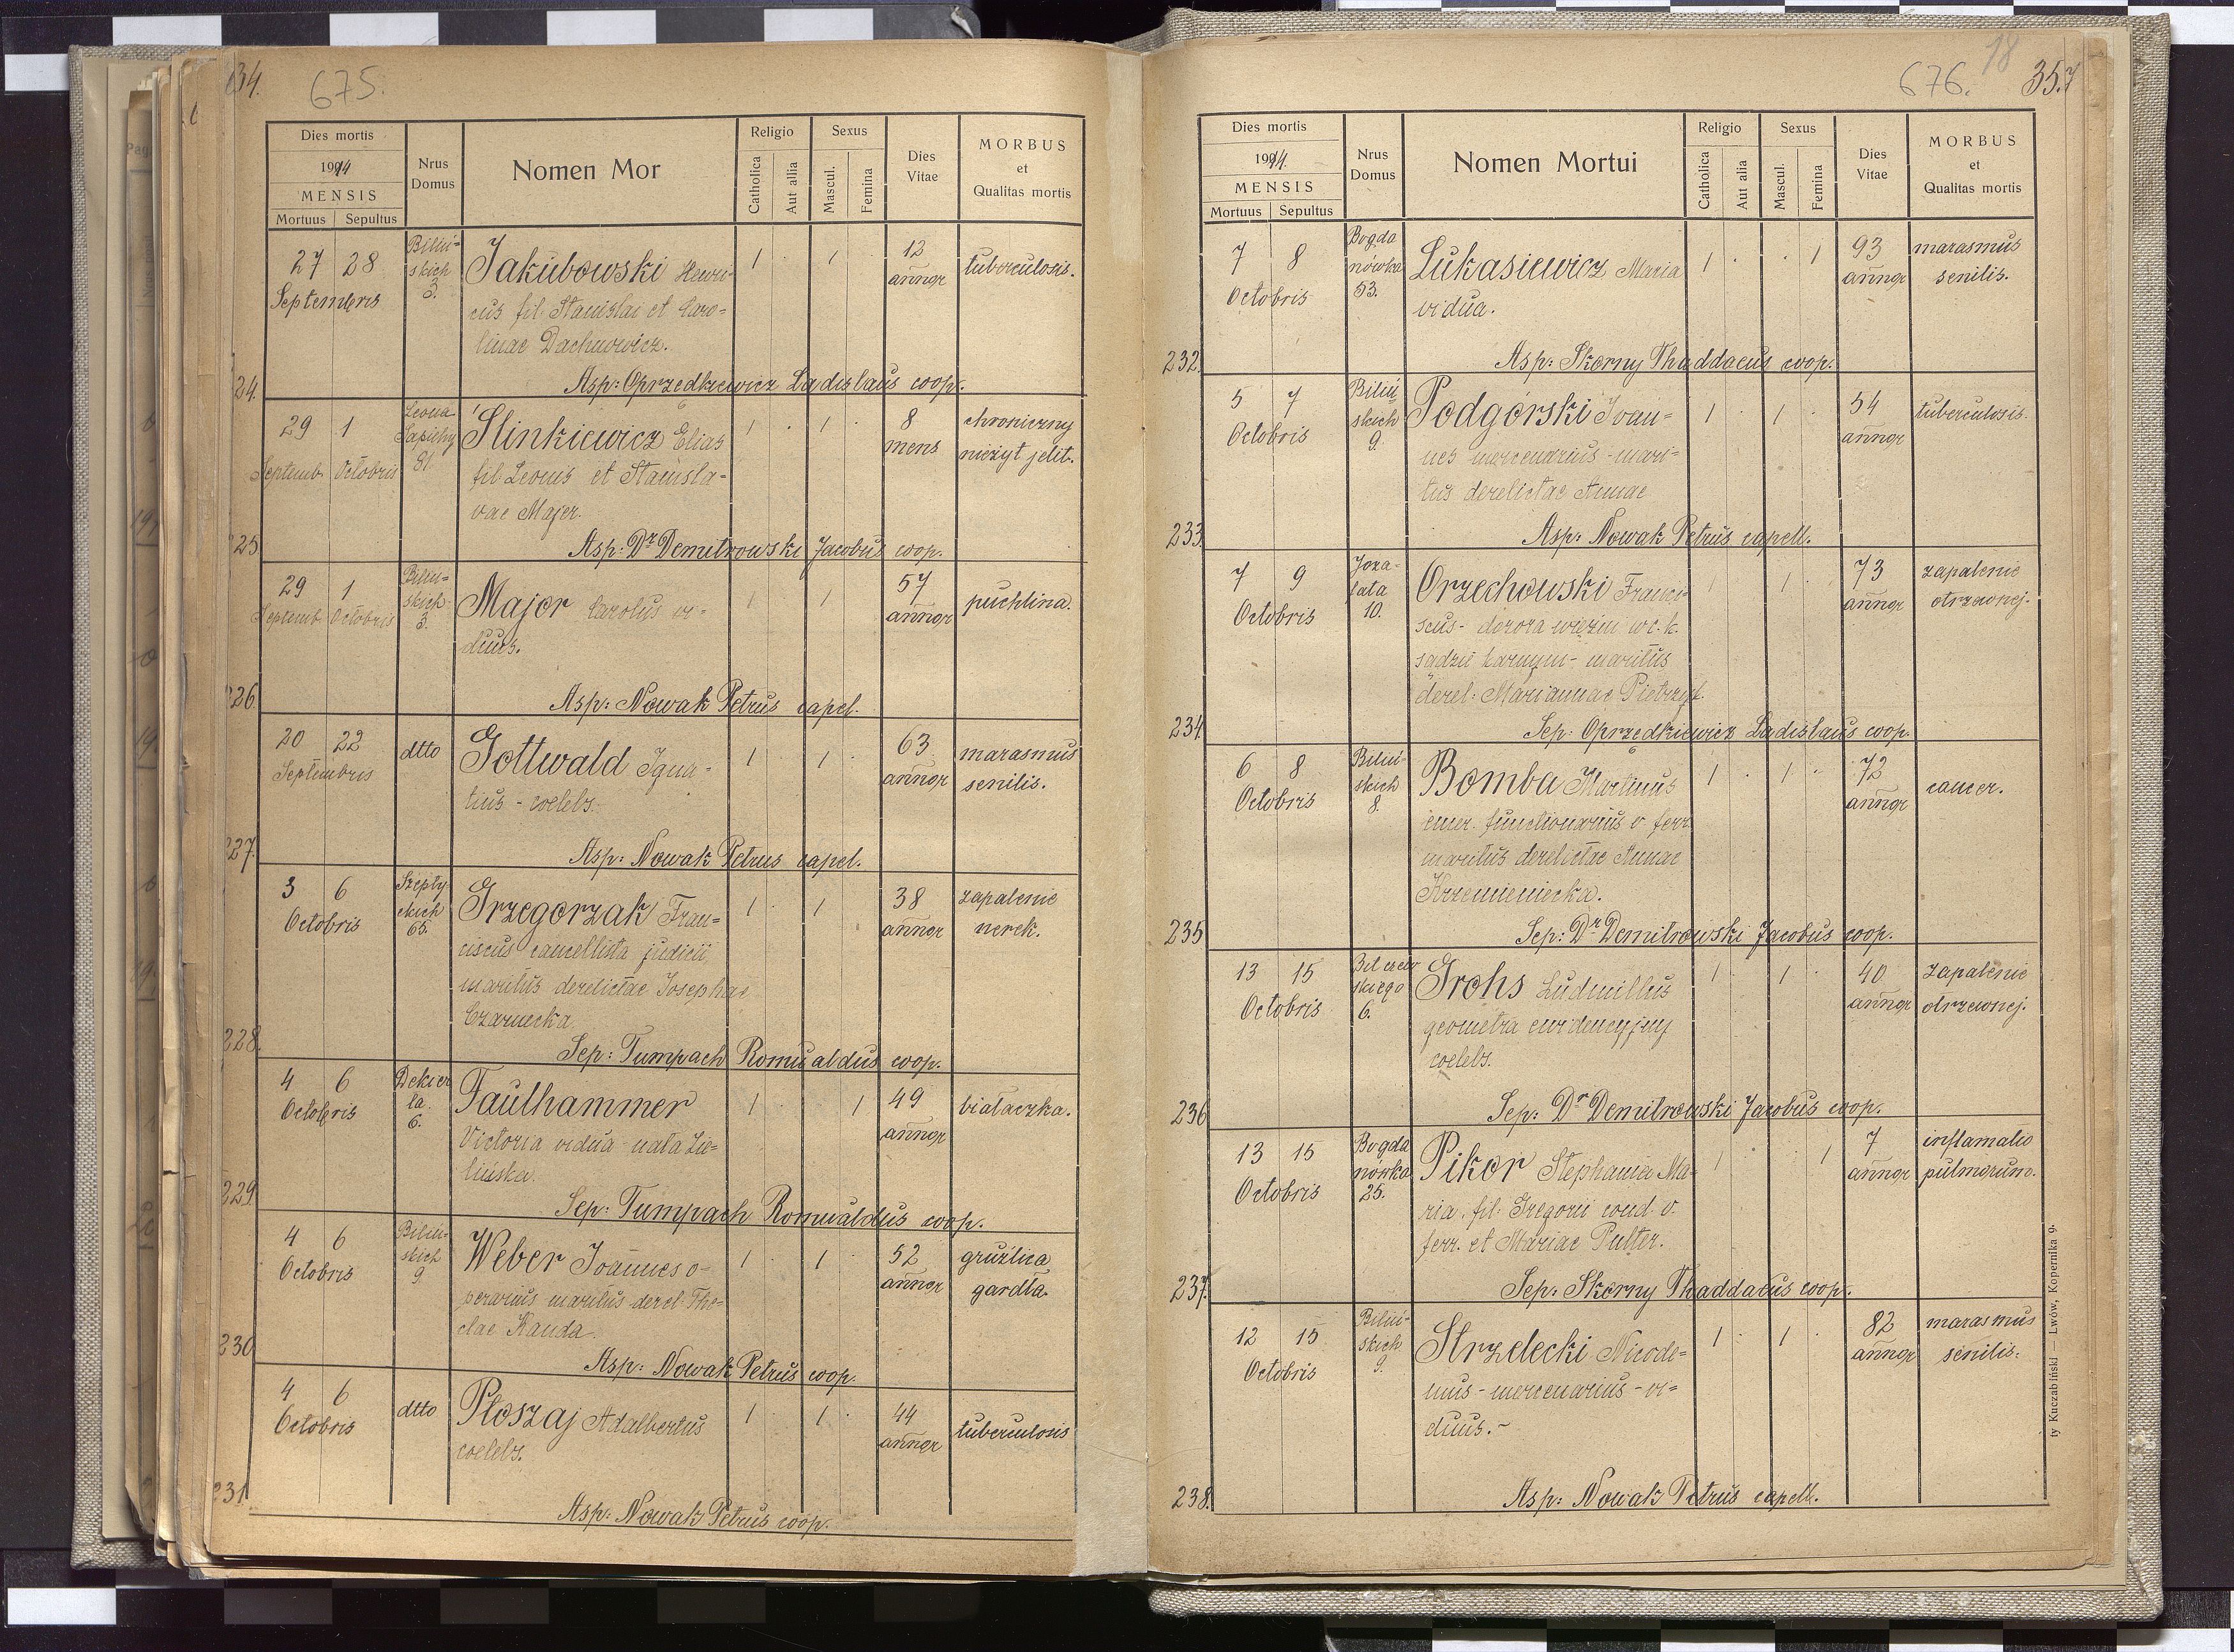 34.
675.
Dies mortis
1914
MENSIS
Mortuus Sepultus
Nrus Domus
Nomen Mor
Religio
Catholica
Aut allia
Sexus
Mascul.
Femina
Dies Vitae
MORBUS
et
Qualitas mortis
27 28
Septembris
Biliń=
skich
3.
Jakubowski Henri-
cus fil. Stanislai et Caro=
linae Dachnowicz.
1 1
12
annor
tuberculosis.
24.
Asp: Oprzędkiewicz Ladislaus coop.
29 1
Septemb. Octobris
Leona
Sapiehy
81.
Ślinkiewicz Elias
fil. Leonis et Stanisla=
vae Majer.
1 1
8
mens
chroniczny
nieżyt jelit.
225
Asp: Dr Demitrowski Jacobus coop.
29 1
Septemb. Octobris
Biliń=
skich
3.
Major Carolus vi-
duus.
1 1
57
annor
puchlina.
226.
Asp: Nowak Petrus capel.
20 22
Septembris
dtto
Gottwald Igna-
tius - coelebs.
1 1
63
annor
marasmus
senilis.
227.
Asp: Nowak Petrus capel.
3 6
Octobris
Szepty
ckich
65.
Grzegorzak Fran=
ciscus cancellista judicii
maritus derelictae Josephae
Czarnecka.
1 1
38
annor
zapalenie
nerek.
228.
Sep: Tumpach Romualdus coop.
4 6
Octobris
Dekier
ta.
6.
Faulhammer
Victoria vidua nata Zie=
lińska.
1 1
49
annor
białaczka.
229.
Sep: Tumpach Romualdus coop.
4 6
Octobris
Biliń-
skich
9
Weber Joannes o-
perarius maritus derel. The=
clae Kanda.
1 1
52
annor
gruźlica
gardła.
230
Asp: Nowak Petrus coop.
4 6
Octobris
dtto
Płoszaj Adalbertus
coelebs.
1 1
44
annor
tuberculosis
231
Asp: Nowak Petrus coop.
18
676. 35.
Dies mortis
1914.
MENSIS
Mortuus Sepultus
Nrus Domus
Nomen Mortui
Religio
Catholica
Aut alia
Sexus
Mascul.
Femina
Dies Vitae
MORBUS
et
Qualitas mortis
7 8
Octobris
Bogda
nówka
53.
Łukasiewicz Maria
vidua.
1 1
93
annor
marasmus
senilis.
232.
Asp: Skorny Thaddaeus coop.
5 7
Octobris
Biliń
skich
9.
Podgórski Joan=
nes mercenarius - mari=
tus derelictae Annae
1 1
54
annor
tuberculosis.
233.
Asp: Nowak Petrus capell.
7 9
Octobris
Joza-
fata
10.
Orzechowski Franci-
scus - dozorca więzni w c. k.
sądzie karnym - maritus
derel: Mariannae
1 1
73
annor
zapalenie
otrzewnej.
234.
Sep: Oprzędkiewicz Ladislaus coop.
6 8
Octobris
Biliń-
skich
8.
Bomba Martinus
emer. functionarius v. ferr.
maritus derelictae Annae
Krzemieniecka.
1 1
72
annor
cancer.
235
Sep: Dr Demitrowski Jacobus coop.
13 15
Octobris
Bilczew
skiego
6.
Grohs Ludmillus
geometra ewidencyjny
coelebs.
1 1
40
annor
zapalenie
otrzewnej.
236
Sep: Dr Demitrowski Jacobus coop.
13 15
Octobris
Bogda
nówka
25.
Pikor Stephania Ma-
ria, fil. Gregorii cond. v.
ferr. et Mariae Pulter.
1 1
7
annor
inflamatio
pulmorum.
237.
Sep: Skorny Thaddaeus coop.
12 15
Octobris
Biliń-
skich
9.
Strzelecki Nicode=
mus - mercenarius - vi=
duus. -
1 1
82
annor
marasmus
senilis.
238.
Asp: Nowak Petrus capell.
ty Kuczabiński — Lwów, Kopernika 9.